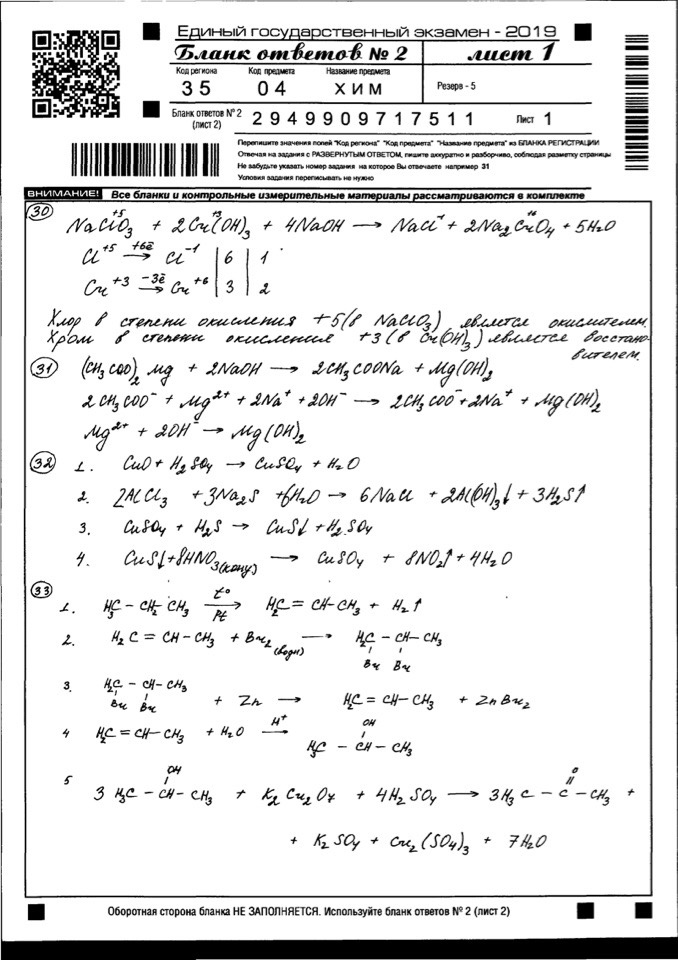 Единый государственный экзамен - 2019
Бланк ответов № 2 лист 1
Код региона Код предмета Название предмета
35 04 ХИМ Резерв - 5
Бланк ответов № 2 (лист 2) 2949909717511 Лист 1
Перепишите значения полей "Код региона" "Код предмета" "Название предмета" из БЛАНКА РЕГИСТРАЦИИ
Отвечая на задания с РАЗВЕРНУТЫМ ОТВЕТОМ, пишите аккуратно и разборчиво, соблюдая разметку страницы
Не забудьте указать номер задания на которое Вы отвечаете например 31
Условия задания переписывать не нужно
ВНИМАНИЕ! Все бланки и контрольные измерительные материалы рассматриваются в комплекте
30 +5 +3 +6
NaClO₃ + 2Cr(OH)₃ + 4NaOH → NaCl⁻¹ + 2Na₂CrO₄ + 5H₂O
Cl⁺⁵ +6ē→ Cl⁻¹ | 6 | 1
Cr⁺³ −3ē→ Cr⁺⁶ | 3 | 2
Хлор в степени окисления +5 (в NaClO₃) является окислителем.
Хром в степени окисления +3 (в Cr(OH)₃) является восстано-
вителем.
31 (CH₃COO)₂Mg + 2NaOH → 2CH₃COONa + Mg(OH)₂
2CH₃COO⁻ + Mg²⁺ + 2Na⁺ + 2OH⁻ → 2CH₃COO⁻ + 2Na⁺ + Mg(OH)₂
Mg²⁺ + 2OH⁻ → Mg(OH)₂
32 1. CuO + H₂SO₄ → CuSO₄ + H₂O
2. 2AlCl₃ + 3Na₂S + 6H₂O → 6NaCl + 2Al(OH)₃↓ + 3H₂S↑
3. CuSO₄ + H₂S → CuS↓ + H₂SO₄
4. CuS↓ + 8HNO₃(конц) → CuSO₄ + 8NO₂↑ + 4H₂O
33 t°
1. H₃C – CH₂ CH₃ → H₂C = CH–CH₃ + H₂↑
Pt
2. H₂C = CH–CH₃ + Br₂(водн) → H₂C – CH–CH₃
Br Br
3. H₂C – CH–CH₃
Br Br + Zn → H₂C = CH–CH₃ + ZnBr₂
4 H₂C = CH–CH₃ + H₂O H⁺→ OH
H₃C – CH–CH₃
5 OH O
3 H₃C – CH–CH₃ + K₂Cr₂O₇ + 4H₂SO₄ → 3H₃C – C –CH₃ +
+ K₂SO₄ + Cr₂(SO₄)₃ + 7H₂O
Оборотная сторона бланка НЕ ЗАПОЛНЯЕТСЯ. Используйте бланк ответов № 2 (лист 2)